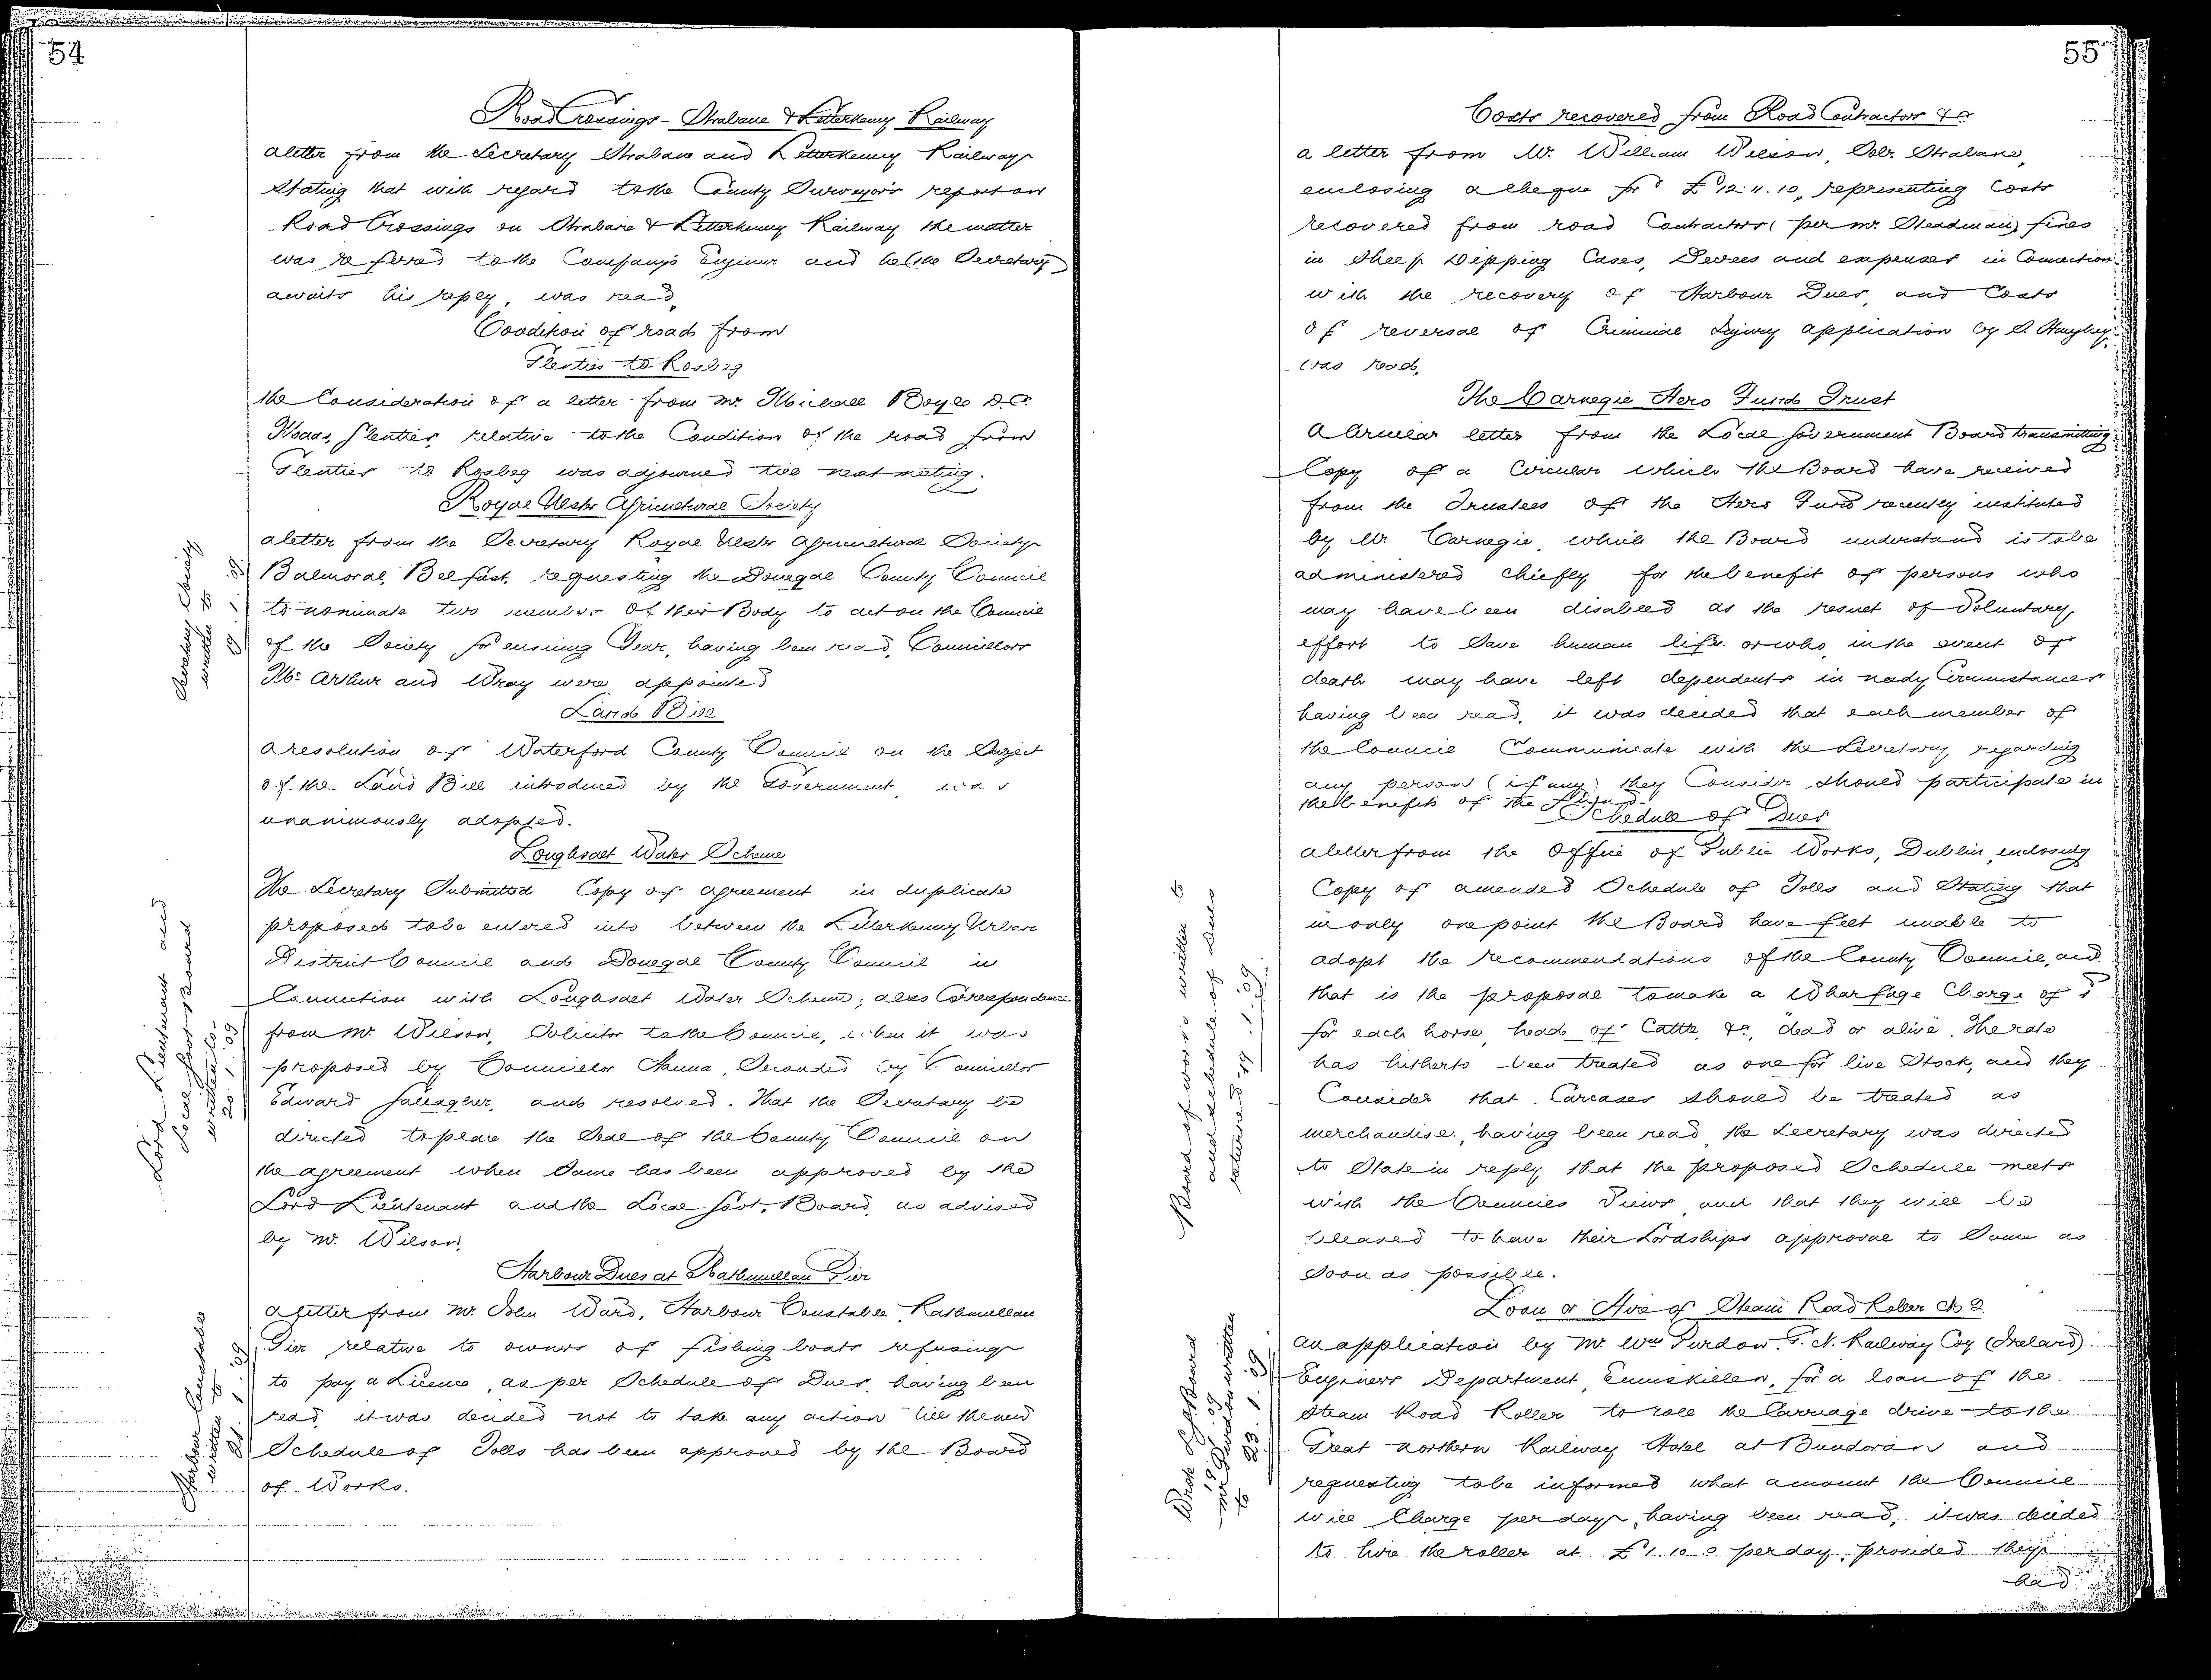 54
Road Crossings - Strabane & Letterkenny Railway
a letter from the Secretary Strabane and Letterkenny Railway
Stating that with regard to the County Surveyor's report on
Road Crossings on Strabane & Letterkenny Railway the matter
was referred to the Company's Engineer and he (the Secretary)
awaits his reply, was read.
Condition of road from
Glenties to Rosbeg
the Consideration of a letter from Mr. Michael Boyle D.C.
Maas, Glenties, relative to the Condition of the road from
Glenties to Rosbeg was adjourned till next meeting.
Royal Ulster Agricultural Society
a letter from the Secretary Royal Ulster Agricultural Society
Balmoral, Belfast, requesting the Donegal County Council
to nominate two member of their Body to act on the Council
of the Society for ensuing Year, having been read, Councillors
McArthur and Wray were appointed
Secretary Society
written to
Land Bill
a resolution of Waterford County Council on the Subject
of the Land Bill introduced by the Government, was
unanimously adopted.
Loughsalt Water Scheme
The Secretary Submitted Copy of agreement in duplicate
proposed to be entered into between the Letterkenny Urban
District Council and Donegal County Council in
Connection with Loughsalt Water Scheme; also Correspondence
from Mr. Wilson, Solicitor to the Council, when it was
proposed by Councillor Hanna, Seconded by Councillor
Edward Gallagher, and resolved. That the Secretary be
directed to place the Seal of the County Council on
the agreement when Same has been approved by the
Lord Lieutenant and the Local Govt. Board, as advised
by Mr. Wilson.
Lord Lieutenant and
Local Govt Board
written to
20.1.09
Harbour Dues at Rathmullan Pier
a letter from Mr. John Ward, Harbour Constable, Rathmullan
Pier relative to owners of fishing boats refusing
to pay a Licence, as per Schedule of Dues, having been
read, it was decided not to take any action till the new
Schedule of Tolls has been approved by the Board
of Works.
Harbour Constable
written to
21.1.09
55
Costs recovered from Road Contractors &c
a letter from Mr. William Wilson, Solr. Strabane,
enclosing a Cheque for £12.11.10, representing Costs
recovered from road Contractors (per Mr. Steadman) fines
in Sheep Dipping Cases, Decrees and expenses in Connection
with the recovery of Harbour Dues, and Costs
of reversal of Criminal Injury application by S. Haughey,
was read.
The Carnegie Hero Fund Trust
A Circular letter from the Local Government Board transmitting
Copy of a Circular which the Board have received
from the Trustees of the Hero Fund recently instituted
by Mr. Carnegie, which the Board understand is to be
administered chiefly for the benefit of persons who
may have been disabled as the result of Voluntary
effort to Save human life or who, in the event of
death may have left dependents in needy Circumstances
having been read, it was decided that each member of
the Council Communicate with the Secretary regarding
any person (if any) they Consider should participate in
the benefits of the Fund.
Schedule of Dues
a letter from the Office of Public Works, Dublin, enclosing
Copy of amended Schedule of Tolls and Stating that
in only one point the Board have felt unable to
adopt the recommendations of the County Council, and
that is the proposal to make a Wharfage Charge of
for each horse, head of Cattle, &c, dead or alive. The rate
has hitherto been treated as one for live Stock, and they
Consider that Carcases should be treated as
merchandise, having been read, the Secretary was directed
to State in reply that the proposed Schedule meets
with the Councils Views and that they will be
pleased to have their Lordships approval to Same as
Soon as possible.
Board of works written to
and schedule of dues
returned 19.1.09
Loan or Hire of Steam Road Roller No 2.
an application by Mr. Wm Purdon. G. N. Railway Coy (Ireland)
Engineers Department, Enniskillen, for a loan of the
Steam Road Roller to roll the Carriage drive to the
Great Northern Railway Hotel at Bundoran and
requesting to be informed what amount the Council
will Charge per day, having been read, it was decided
to hire the roller at £1.10.0 per day, provided they
had
Mr Purdon written
to 23.1.09